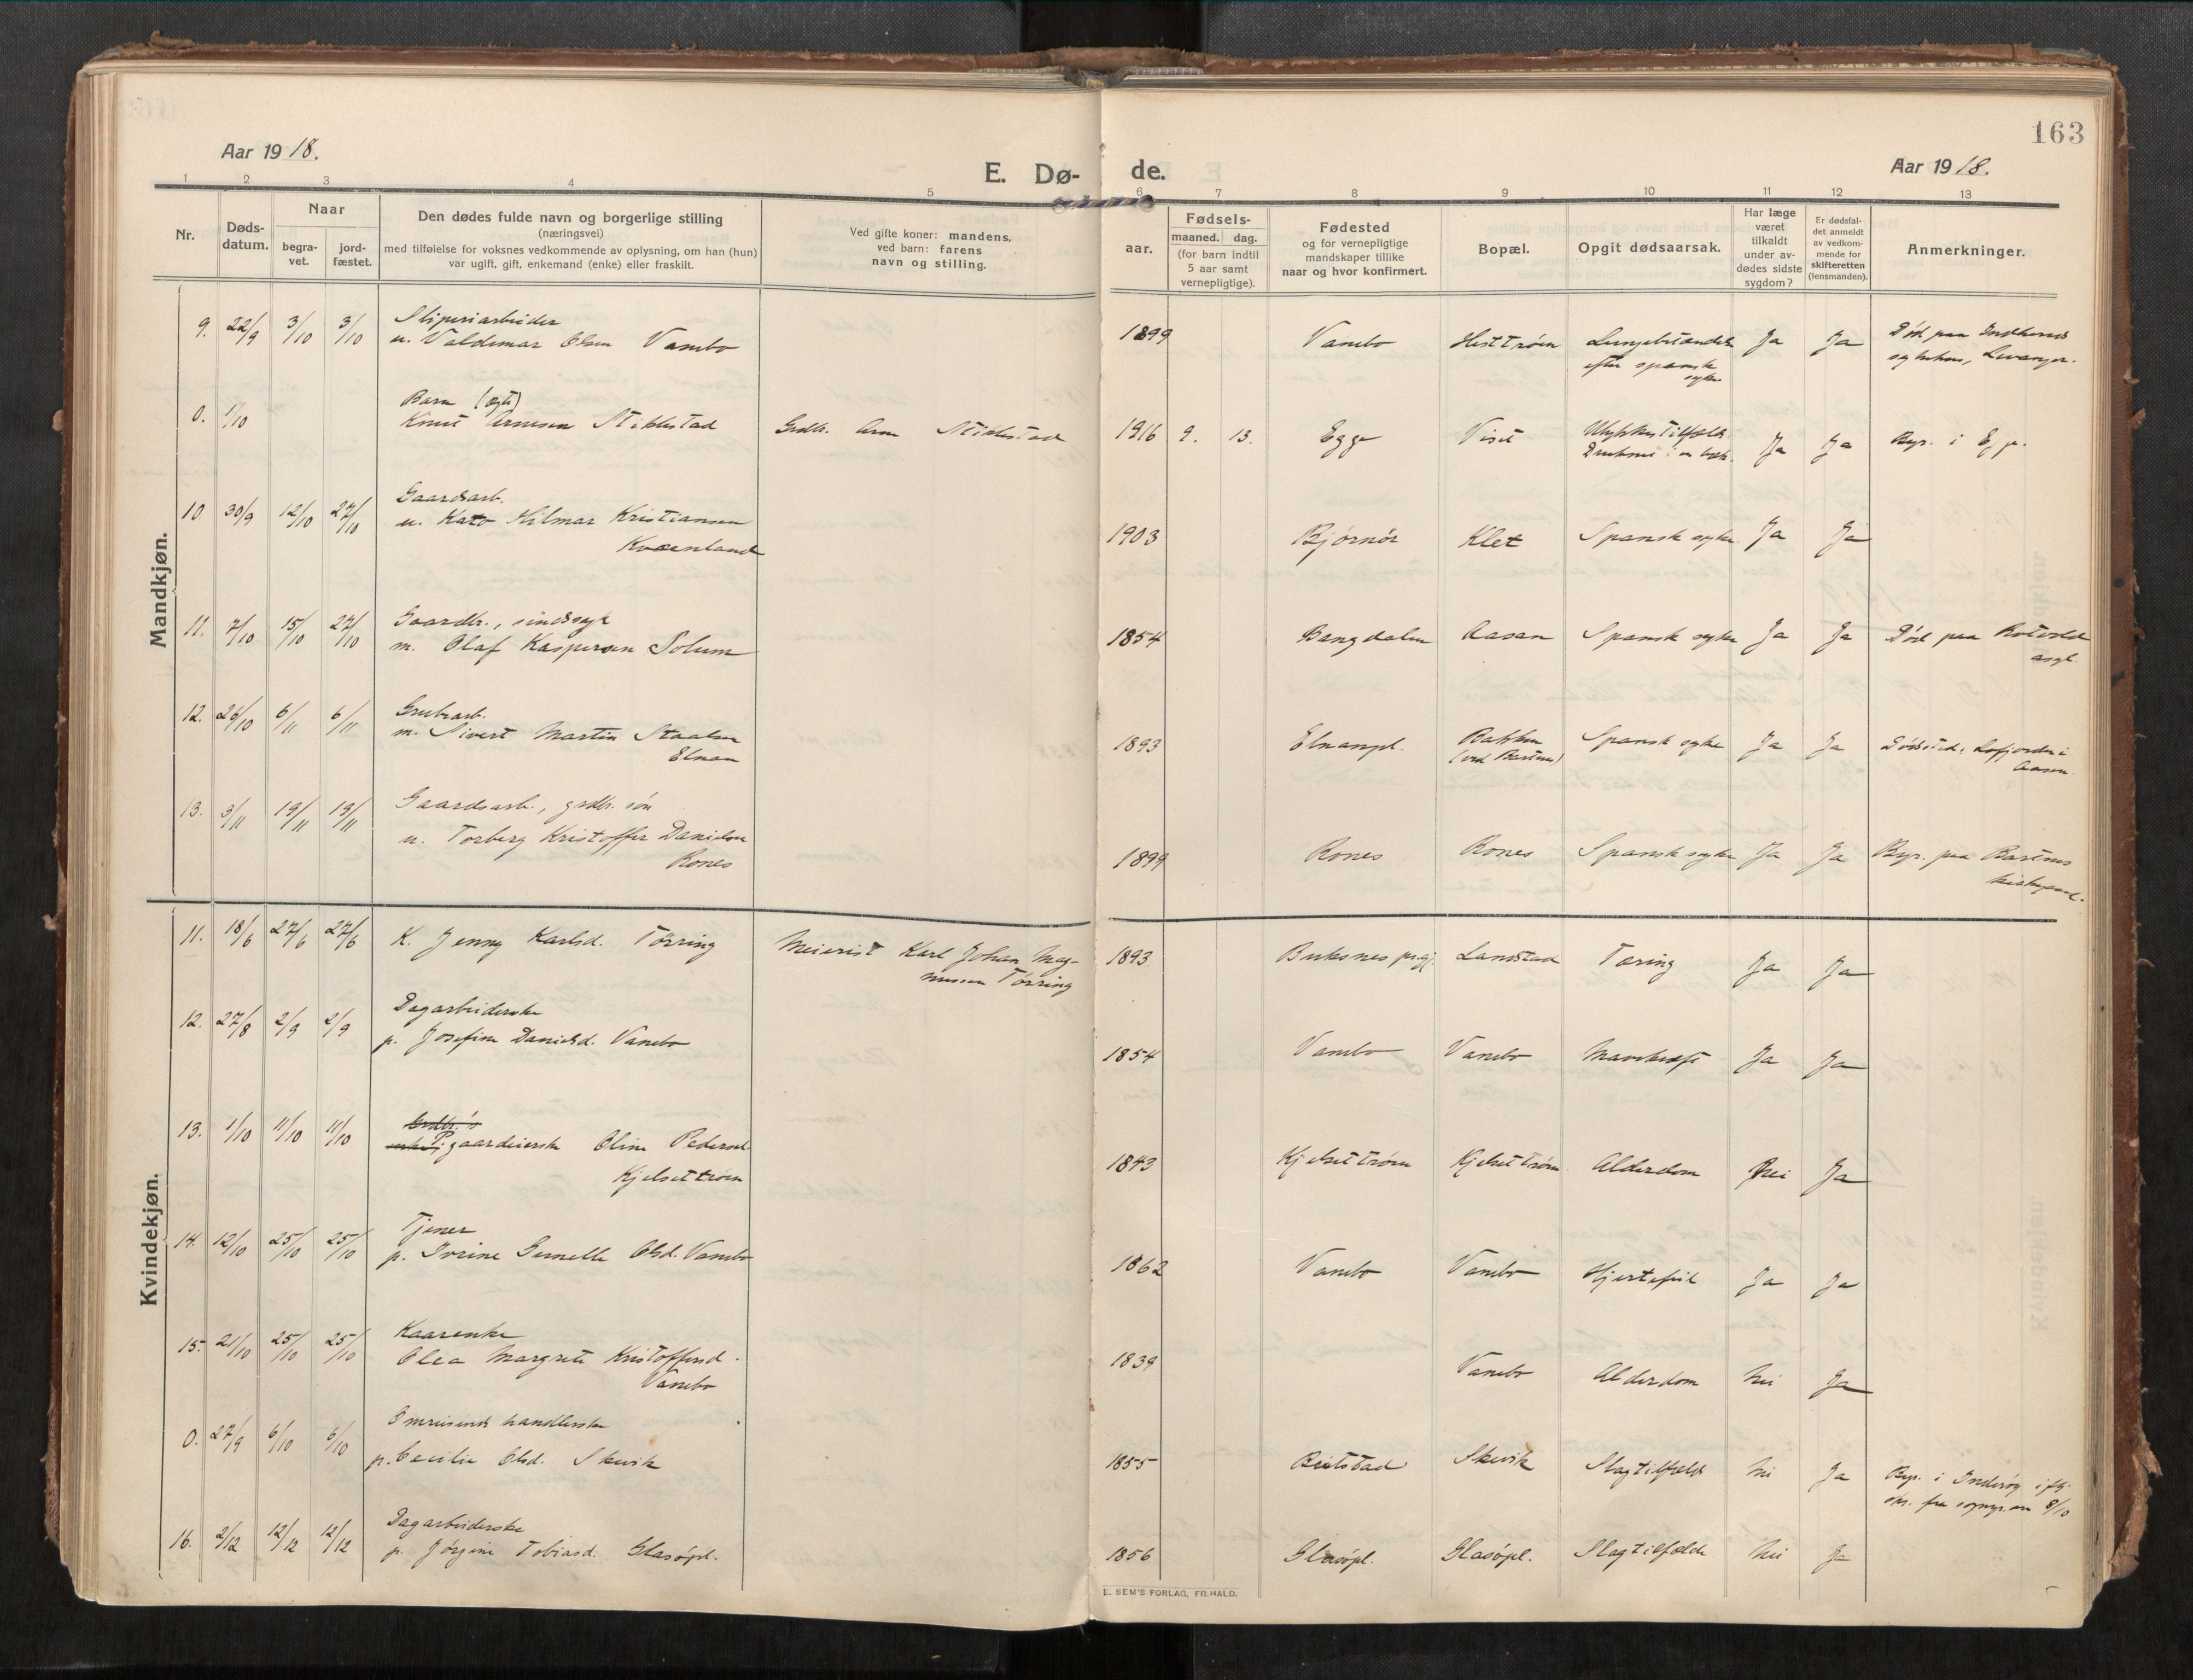 163
Aar 1918.
E. Dø- de.
Aar 1918.
1 2 3 4 5 6 7 8 9 10 11 12 13
Nr.
Døds-
datum.
Naar
begra-
vet.
jord-
fæstet.
Den dødes fulde navn og borgerlige stilling
(næringsvei)
med tilføielse for voksnes vedkommende av oplysning, om han (hun)
var ugift, gift, enkemand (enke) eller fraskilt.
Ved gifte koner: mandens,
ved barn: farens
navn og stilling.
aar.
Fødsels-
maaned. dag.
(for barn indtil
5 aar samt
vernepligtige).
Fødested
og for vernepligtige
mandskaper tillike
naar og hvor konfirmert.
Bopæl.
Opgit dødsaarsak.
Har læge
været
tilkaldt
under av-
dødes sidste
sygdom?
Er dødsfal-
det anmeldt
av vedkom-
mende for
skifteretten
(lensmanden).
Anmerkninger.
Mandkjøn.
9. 22/9 3/10 3/10 Sliperiarbeider
u. Valdemar Olsen Vanebo 1899 Vanebo Hesttrøen Lungebetændelse Ja Ja Død paa Indherreds
efter spansk syke sykehus, Levanger.
0. 1/10 Barn (ægte)
Knut Arnesen Stiklestad Grdbr. Arne Stiklestad 1916 9. 13. Egge Viset Ulykkestilfælde Ja Ja Begr. i Egge.
Druknet i en bæk.
10. 30/9 12/10 27/10 Gaardsarb.
u. Kato Hilmar Kristiansen 1903 Bjørnør Klet Spansk syke Ja Ja
Kvernland
11. 7/10 15/10 27/10 Gaardbr., sindssyk
m. Olaf Kaspersen Solum 1854 Bangdalen Aasan Spansk syke Ja Ja Død paa Rotvold
asyl.
12. 26/10 6/11 6/11 Grubearb.
m. Sivert Martin Staalsen 1893 Elnanpl. Bakken Spansk syke Ja Ja Dødssted: Lofjorden i
Elnan (ved Bartnes) Aasen
13. 3/11 19/11 19/11 Gaardsarb., grdbr. søn
u. Torberg Kristoffer Danielsen 1899 Rones Rones Spansk syke Ja Ja Begr. paa Bartnes
Rones kirkegaard.
Kvindekjøn.
11. 18/6 27/6 27/6 K. Jenny Karlsd. Tørring Meierist Karl Johan Mag- 1893 Buksnes prgj. Landstad Tæring Ja Ja
nussen Tørring
12. 27/8 2/9 2/9 Dagarbeiderske
p. Josefine Danielsd. Vanebo 1854 Vanebo Vanebo Mavekræft Ja Ja
13. 1/10 11/10 11/10 Grdbr.'s
enke P. gaardeierske Oline Pedersd. 1843 Kjelsettrøen Kjelsettrøen Alderdom Nei Ja
Kjelsettrøen
14. 12/10 25/10 25/10 Tjener
p. Ivrine Gunelle Olsd. Vanebo 1862 Vanebo Vanebo Hjertefeil Ja Ja
15. 21/10 25/10 25/10 Kaarenke
Olea Margrete Kristoffersd. 1839 Vanebo Alderdom Nei Ja
Vanebo
0. 27/9 6/10 6/10 Omreisende handlerske
p. Cecilie Olsd. Skevik 1855 Beitstad Skevik Slagtilfælde Nei Ja Begr. i Inderøy iflg.
skr. fra sognepr. av 8/10
16. 2/12 12/12 12/12 Dagarbeiderske
p. Jørgine Tobiasd. Glasøpl. 1856 Glasøpl. Glasøpl. Slagtilfælde Nei Ja
E. SEM'S FORLAG, FR.HALD.